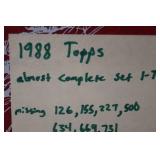 1988 Topps
almost complete set 1-7
missing 126,155,227,500
634,669,731